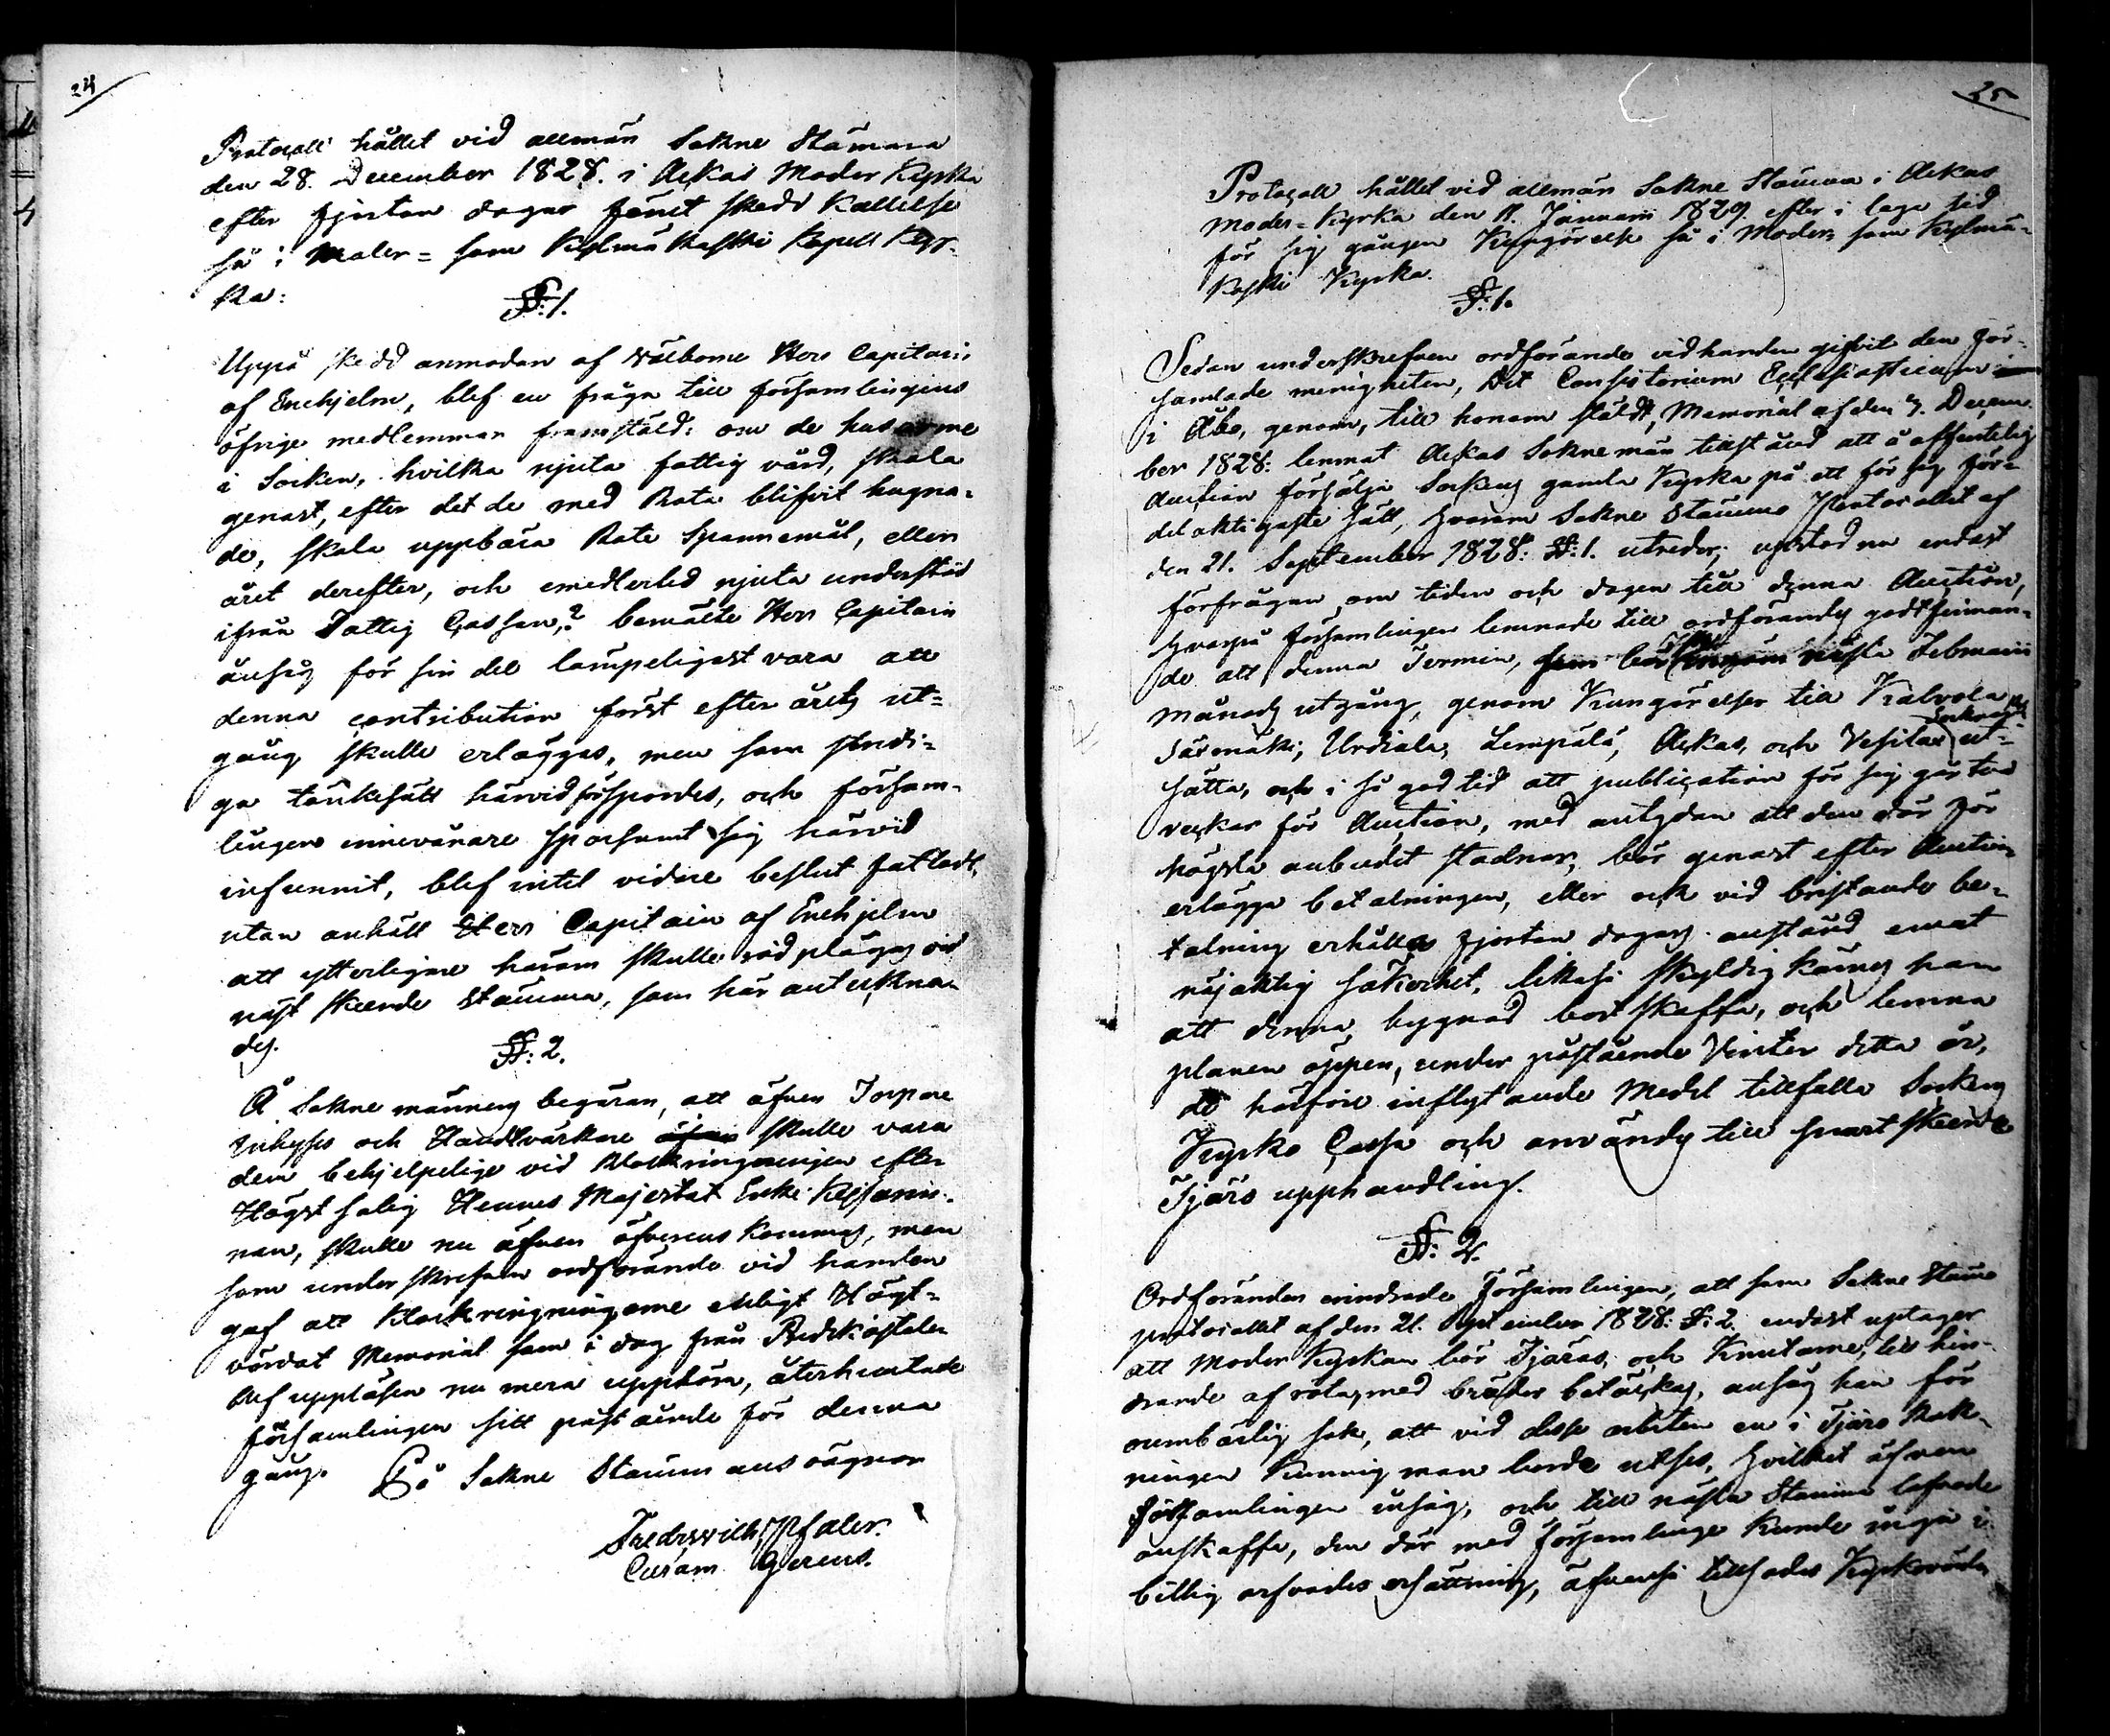 24
Protocoll hållet vid allmän Sokne Stämma
den 28. December 1828. i Ackas Moder Kyrka
efter fjorton dagar förut skedd Kallelse
så i Moder= som Kylmäkoski Kapell Kyr-
ka:
§:1.
Uppå skedd anmodan af Välborne Herr Capitain
af Enehjelm, blef en fråga till församlingens
öfrige medlemmar framstäld: om de husarme
i Socken, hvilka njuta fattig vård, skola
genast, efter det de med Rota blifvit hugna-
de, skola uppbära Rote Spannemål, eller
året derefter, och emedlertid njuta understöd
ifrån Fattig Cassan,? bemälte Herr Capitain
ansåg för sin del lämpeligast vara att
denna contribution först efter årets ut=
gång skulle erläggas, men som skilj-
ga tänkesätt härvid förspordes, och försam-
lingens innevånare sparsamt sig härvid
infunnit, blef intet vidare beslut fattadt,
utan anhöll Herr Capitain af Enehjelm
att ytterligare härom skulle rådplägas vid
näst skeende stämma, som här antekna-
des.
§:2.
Å Sokne männens begäran, att äfven Torpare
Inhyses och Handtvärkare skulle vara
dem behjelpelige vid Klockringningen efter
Högst salig Hennes Majestät Enke Kejsarin-
nan, skulle nu äfven öfverens kommas, men
som underskrefven ordförande vid handen
gaf att Klockringningarne enligt Högt-
vördat Memorial som i dag från Predikostolen
blef uppläsen nu mera upphöra, återhemtade
församlingen sitt påstående för denna
gång. På Sokne Stämmans vägnar
Fredr Wilh Pfaler.
Curam Gerens.
25
Protocoll hållet vid allmän Sokne Stämma i Ackas
Moder=Kyrka den 11. Januarii 1829. efter i laga tid
för sig gången Kungörelse så i Moder= som Kylmä-
koski Kyrka.
§:1.
Sedan underskrefven ordförande vidhanden gifvit den för-
samlade menigheten, Det Consistorium Ecclesiasticum
i Åbo, genom, till honom stäldt, Memorial af den 3. Decem-
ber 1828: lemnat Ackas Soknemän tillstånd att å offentelig
Auction försälja Sockens gamla Kyrka på ett för sig för-
delaktigaste sätt, hvarom Sokne Stämmo Protocollet af
den 21. September 1828: §:1. utreder; uppstod nu endast
förfrågan, om tiden och dagen till denna Auction,
hvarpå församlingen lemnade till ordförandes godtfinnan-
de att denna Termin, nästa Februarii
månads utgång, genom Kungörelser till Kalvola
Särmäki, Urdiala, Lempälä, Ackas, och Vesilax Soknar ut-
sätta, och i så god tid att publication för sig går två
veckor för Auction, med antydan att den där för
högsta anbudet stadnar, bör genast efter Auction
erlägga betalningen, eller ock vid bristande be-
talning erhålla fjorton dagars anstånd emot
nöjaktig säkerhet, likaså skyldig kännes han
att denna bygnad bortskaffa, och lemna
planen öppen, under påstående Vinter detta år,
de härföre inflytande Medel tillfalla Sockens
Kyrko Cassa och användes till snart skeende
Tjäro upphandling.
§:2.
Ordföranden erindrade Församlingen, att som Sokne Stämmo
protocollet af den 21. September 1828: §:2. endast uptager
att Moder Kyrkan bör Tjäras, och Knutarne, till hin-
drande af röta, med bräder betäckas, ansåg han för
oumbärlig sak, att vid desse arbeten en i Tjäro kok-
ningen Kunnig man borde utses, hvilket äfven
församlingen insåg, och till nästa Stämma lofvade
anskaffa, den där med församlingen kunde ingå i
billig arfvodes ersättning, äfvenså tillsades Kyrkovärden